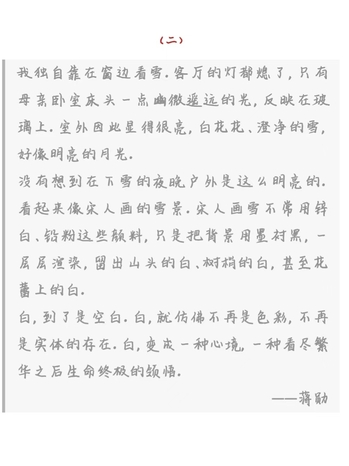 （二）
我独自靠在窗边看雪.客厅的灯都熄了,只有
母亲卧室床头一点幽微遥远的光,反映在玻
璃上.室外因此显得很亮,白花花、澄净的雪,
好像明亮的月光.
没有想到在下雪的夜晚户外是这么明亮的.
看起来像宋人画的雪景.宋人画雪不常用锌
白、铅粉这些颜料,只是把背景用墨衬黑,一
层层渲染,留出山头的白、树梢的白,甚至花
蕾上的白.
白,到了是空白.白,就仿佛不再是色彩,不再
是实体的存在.白,变成一种心境,一种看尽繁
华之后生命终极的领悟.
——蒋勋